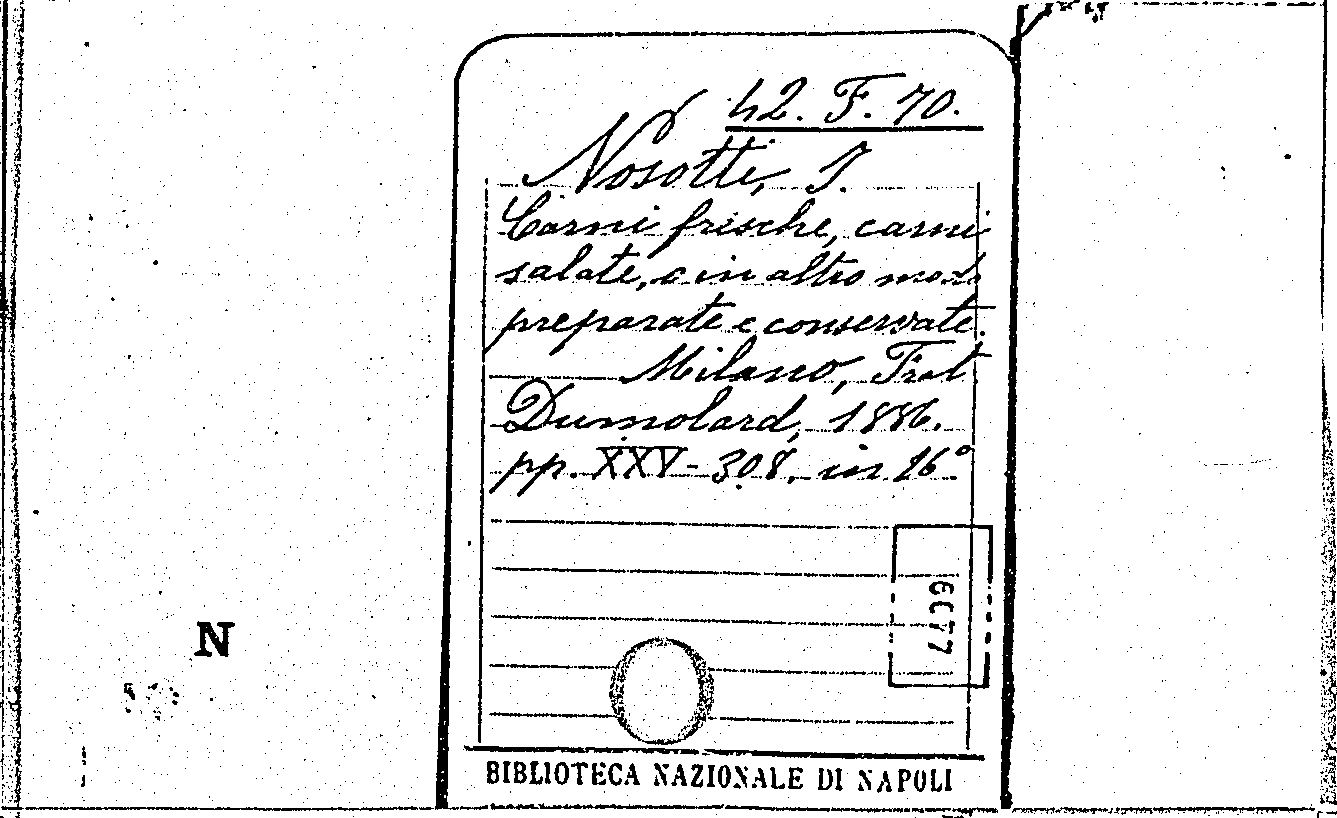 42. F. 70.
Nosotti, I.
Carni frische, carni
salate, e in altro modo
preparate e conservate.
Milano, Frat
Dumolard, 1886.
pp. XXV-308. in 16°
6077
N
BIBLIOTECA NAZIONALE DI NAPOLI